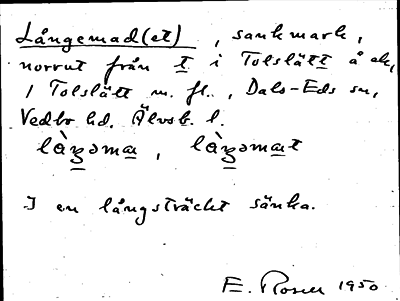 Långemad(et), sankmark,
norrut från t i Tolslätt å ek,
1 Tolslätt m. fl., Dals-Eds sn,
Vedbo hd. Älvsb. l.
làŋəma, làŋəmat
I en långsträckt sänka.
E. Rosell 1950